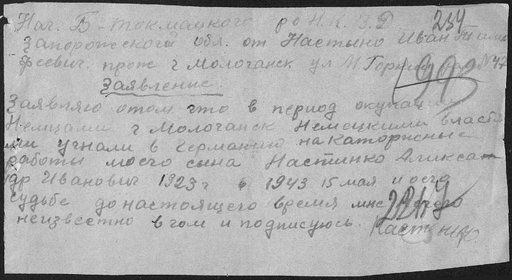 Нач. Б-Токмацкого ро Н.К.В.Д. 254
Запорожской обл. от Настыно Иван
феевич прож г Молочанск ул М Горкий № 47
Заявление
Заявляю отом что в период окупаци
Немцами г Молочанск Немецкими власт
ми угнали в Германию на каторжные
работы моего сына Настинко Алекса
др Иванович 1923 г в 1943 15 мая и о его
судьбе до настоящего время мне
неизвестно в том и подписуюсь